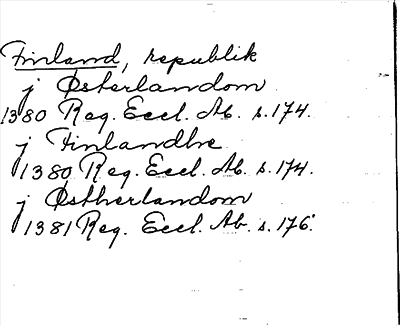 Finland, republik
j Østerlandom
1380 Reg. Eccl. Ab. s. 174.
j Finlandhe
1380 Reg. Eccl. Ab. s. 174.
j Østherlandom
1381 Reg. Eccl. Ab. s. 176.